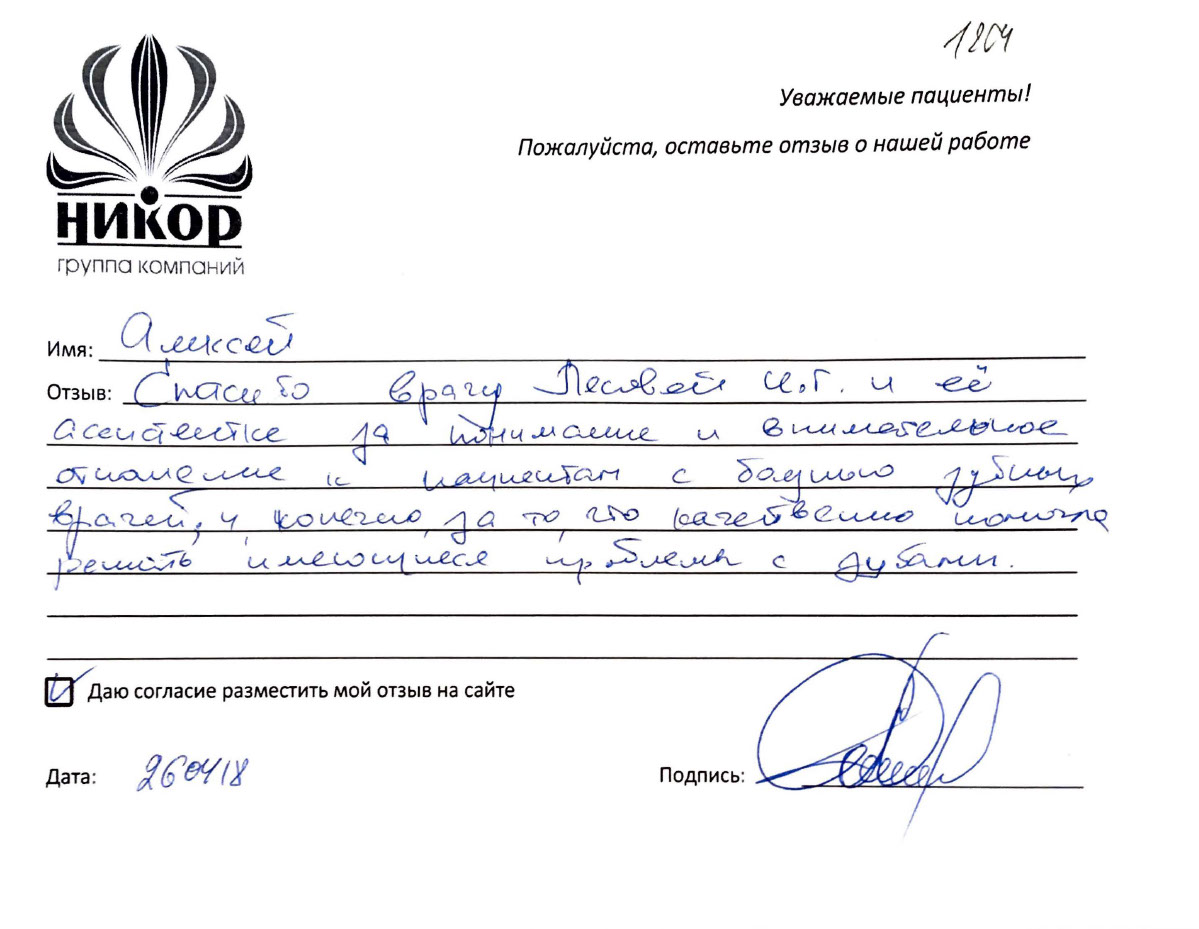 1204
Уважаемые пациенты!
Пожалуйста, оставьте отзыв о нашей работе
НИКОР
группа компаний
Имя: Алексей
Отзыв: Спасибо врачу Лесовой И.Г. и её
ассистентке за понимание и внимательное
отношение к пациентам с боязнью зубных
врачей, и конечно, за то, что качественно помогла
решить имеющиеся проблемы с зубами.
Даю согласие разместить мой отзыв на сайте
Дата: 260418
Подпись: